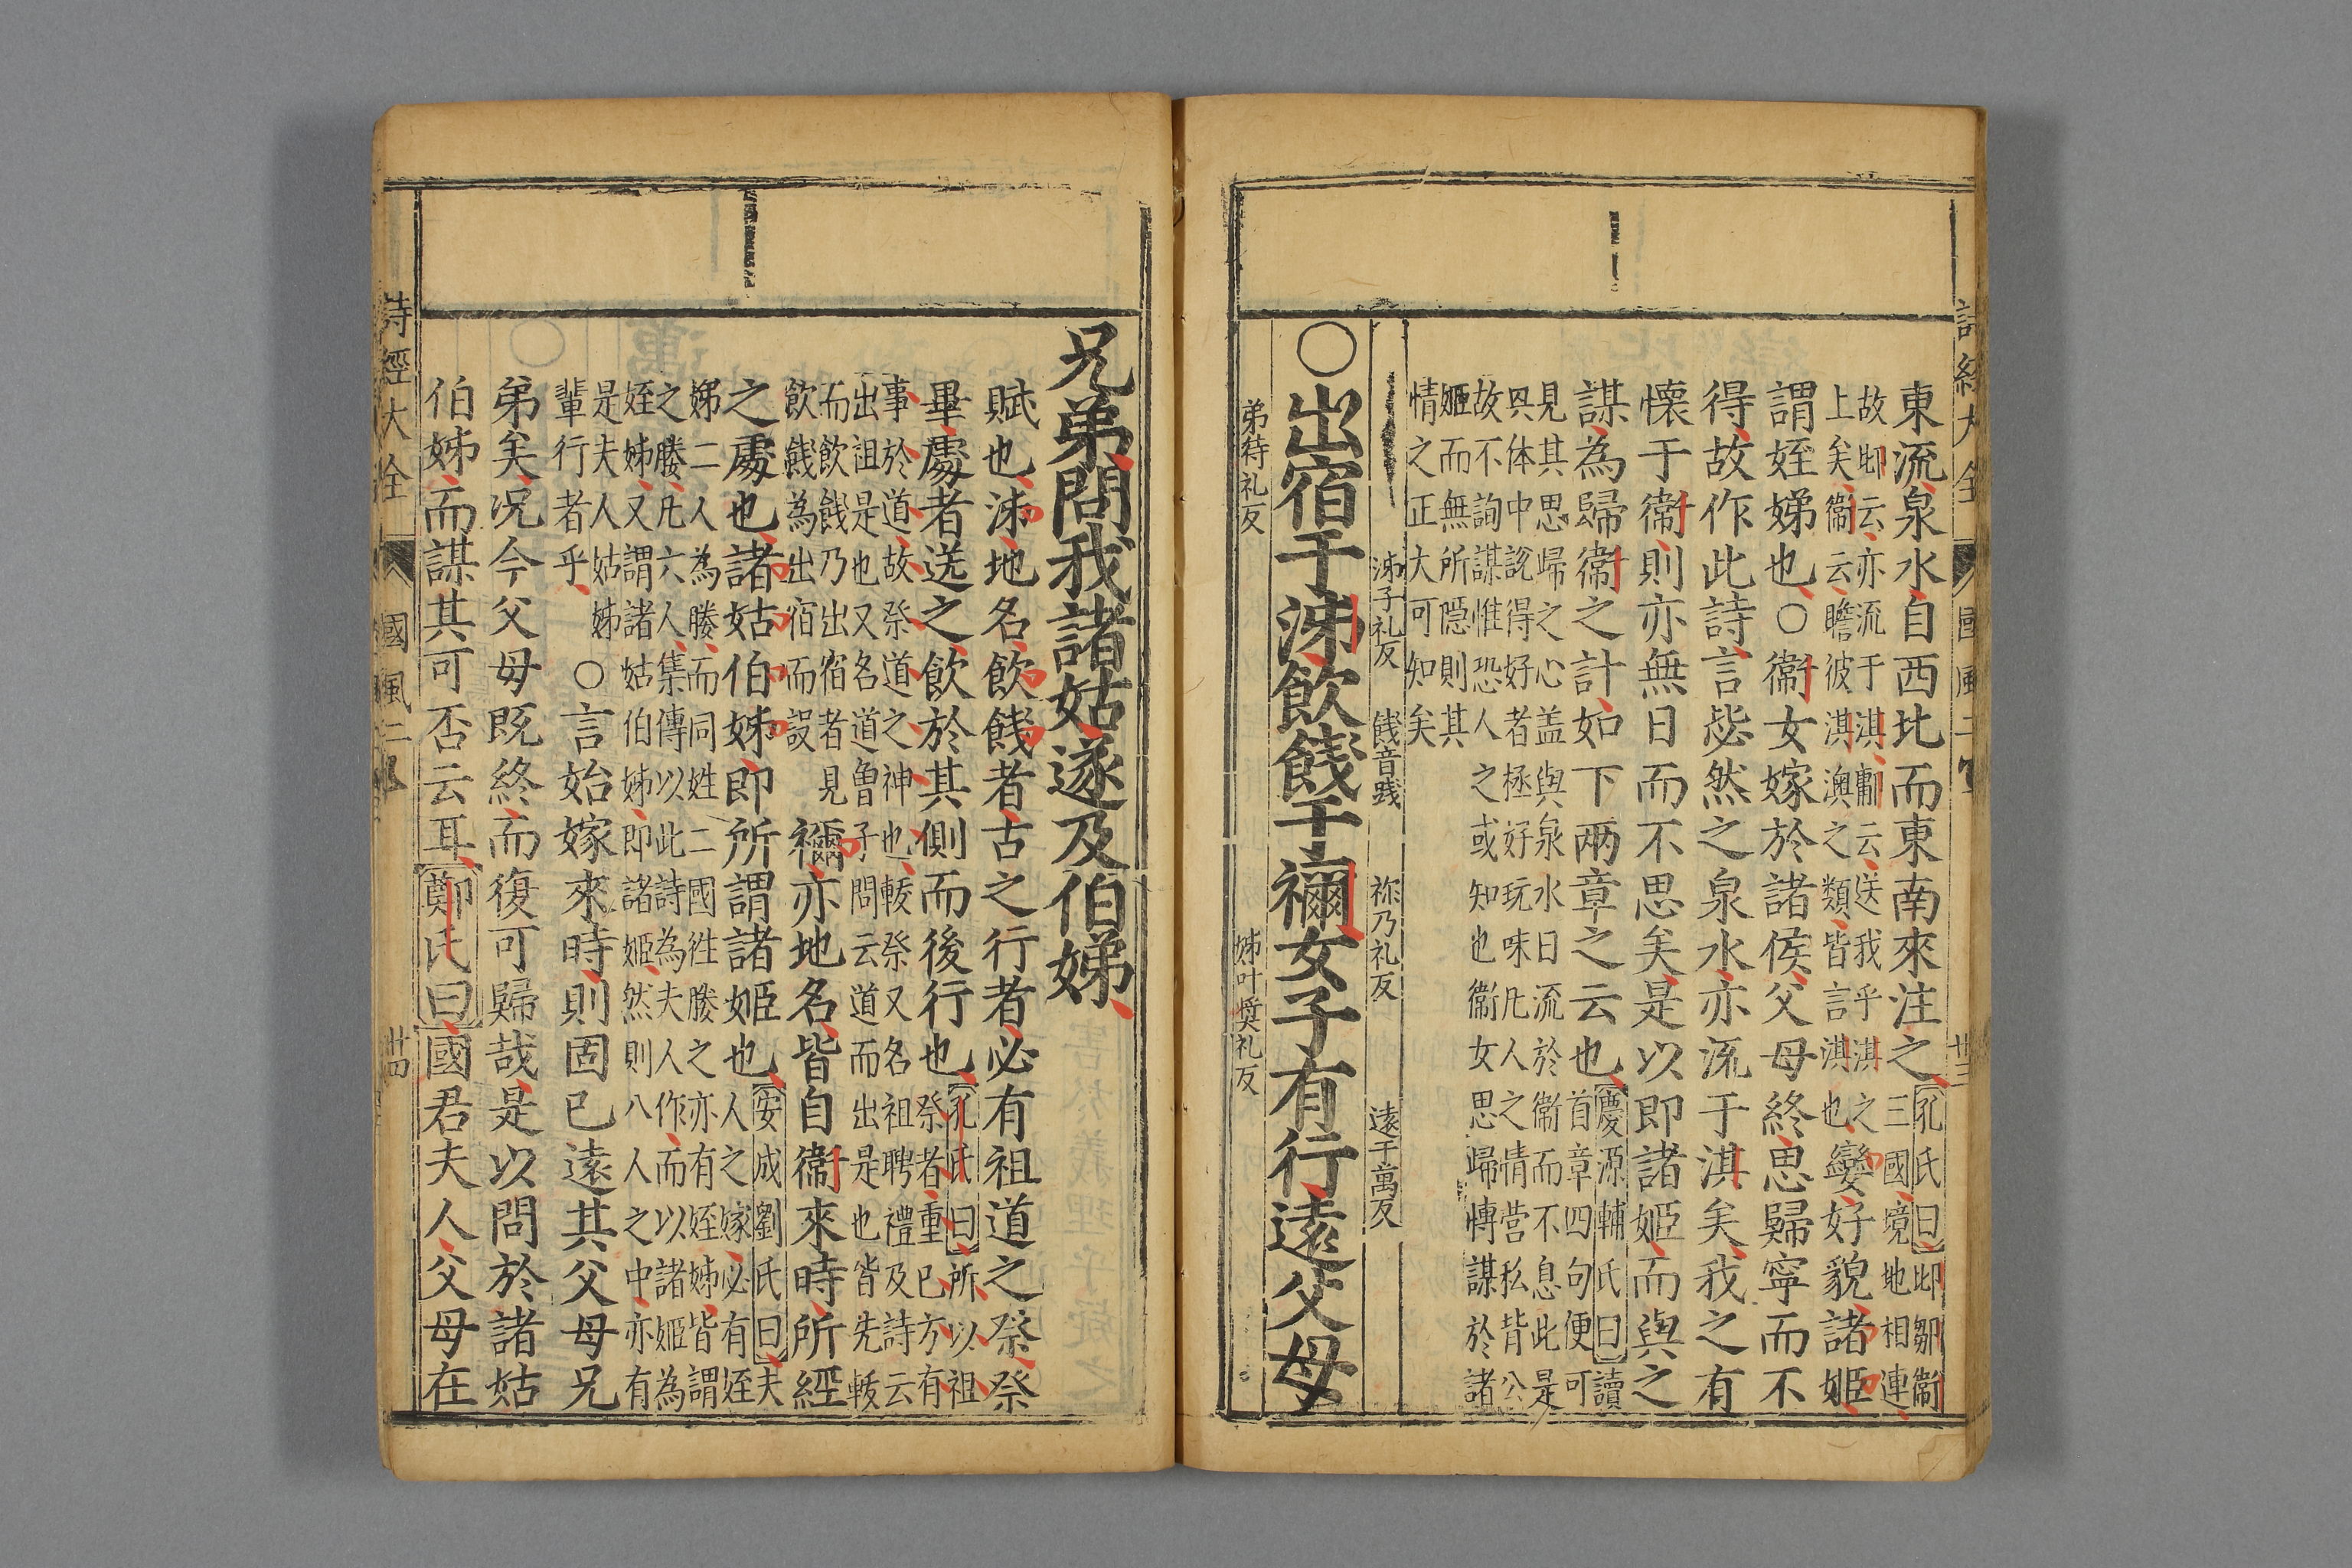 詩經大全 國風二卷 廿三
東流泉水自西北而東南來注之
孔氏曰邶鄘衞
三國境地相連
故邶云亦流于淇鄘云送我乎淇之
上矣衞云瞻彼淇澳之類皆言淇也
孌好貌諸姬
謂姪娣也○衞女嫁於諸侯父母終思歸寧而不
得故作此詩言毖然之泉水亦流于淇矣我之有
懷于衞則亦無日而不思矣是以即諸姬而與之
謀為歸衞之計如下两章之云也
慶源輔氏曰讀
首章四句便可
見其思歸之心盖與泉水日流於衞而不息此是
具体中說得好者極好玩味凡人之情营私背公
故不詢謀惟恐人之或知也衞女思歸博謀於諸
姬而無所隱則其
情之正大可知矣
泲子礼反 餞音踐 祢乃礼反 遠于萬反
○出宿于泲飲餞于禰女子有行遠父母
弟待礼反 姊叶奬礼反
兄弟問我諸姑遂及伯姊
賦也泲地名飲餞者古之行者必有祖道之祭祭
畢處者送之飲於其側而後行也
孔氏曰所以祖
祭者重已方有
事於道故祭道之神也軷祭又名祖聘禮及詩云
出祖是也又名道曾子問云道而出是也皆先軷
而飲餞乃出宿者見
飲餞為出宿而設
禰亦地名皆自衞來時所經
之處也諸姑伯姊即所謂諸姬也
安成劉氏曰夫
人之嫁必有姪
娣二人為媵而同姓二國徃媵之亦有姪娣皆謂
之媵凡六人集傳以此詩為夫人作而以諸姬為
姪娣又謂諸姑伯姊即諸姬然則八人之中亦有
是夫人姑姊
輩行者乎
○言始嫁來時則固已遠其父母兄
弟矣况今父母既終而復可歸哉是以問於諸姑
伯姊而謀其可否云耳鄭氏曰國君夫人父母在
詩經大全 國風二卷 廿四